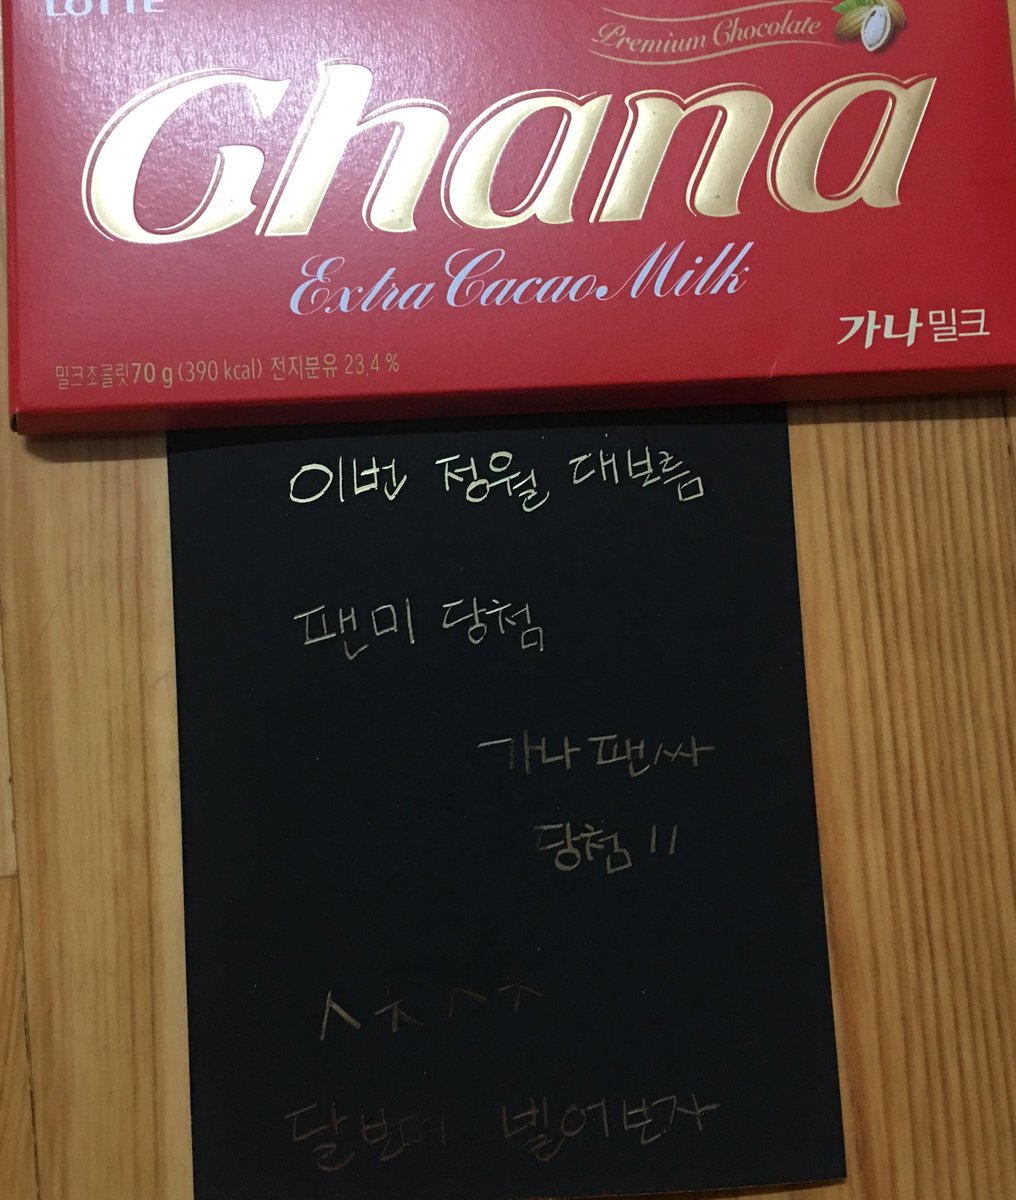 LOTTE
Premium Chocolate
Ghana
Extra Cacao Milk
가나밀크
밀크초콜릿70 g (390 kcal) 전지분유 23.4 %
이번 정월 대보름
팬미 당첨
가나 팬싸
당첨 !!
ㅅㅊㅅㅈ
달보며 빌어보자